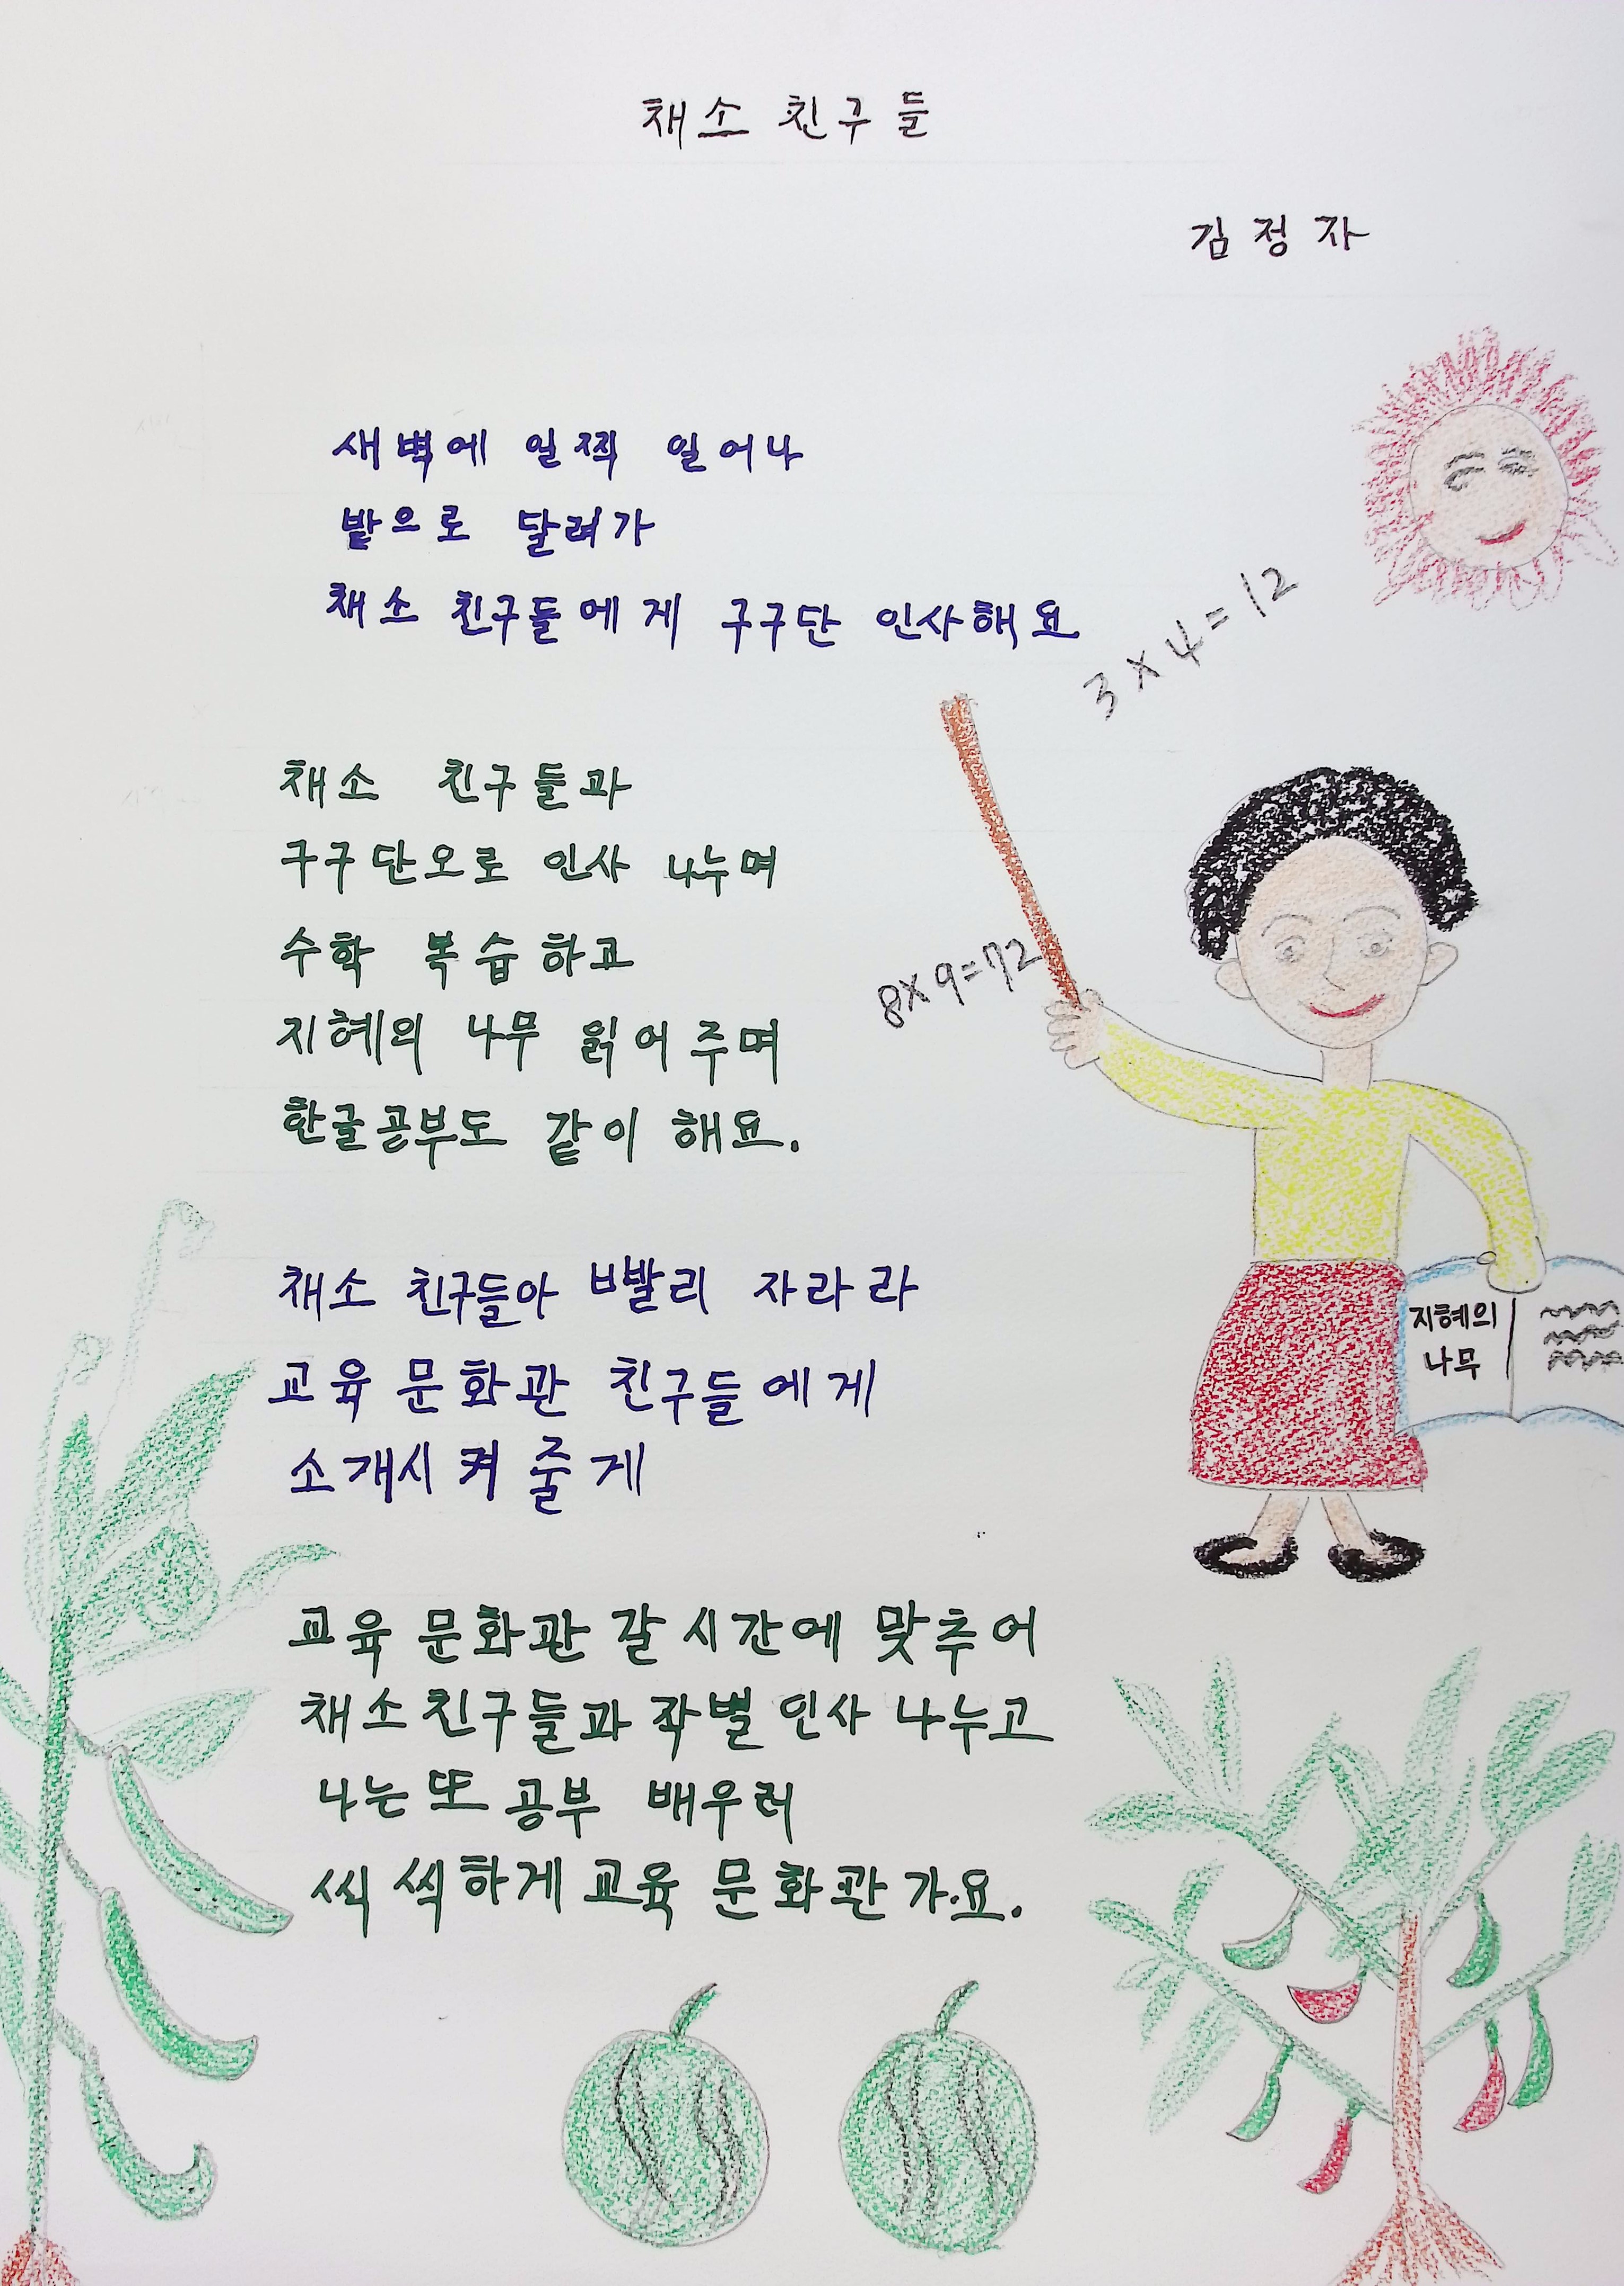 채소 친구들
김정자
새벽에 일찍 일어나
밭으로 달려가
채소 친구들에게 구구단 인사해요
3×4=12
채소 친구들과
구구단으로 인사 나누며
수학 복습하고
8×9=72
지혜의 나무 읽어 주며
한글공부도 같이 해요.
채소 친구들아 빨리 자라라
지혜의
나무
교육 문화관 친구들에게
소개시켜 줄게
교육 문화관 갈 시간에 맞추어
채소 친구들과 작별 인사 나누고
나는 또 공부 배우러
씩씩하게 교육 문화관 가요.